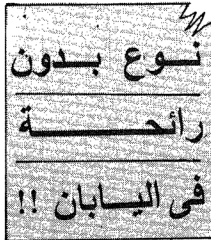 نوع بدون
رائحة
فى اليابان !!